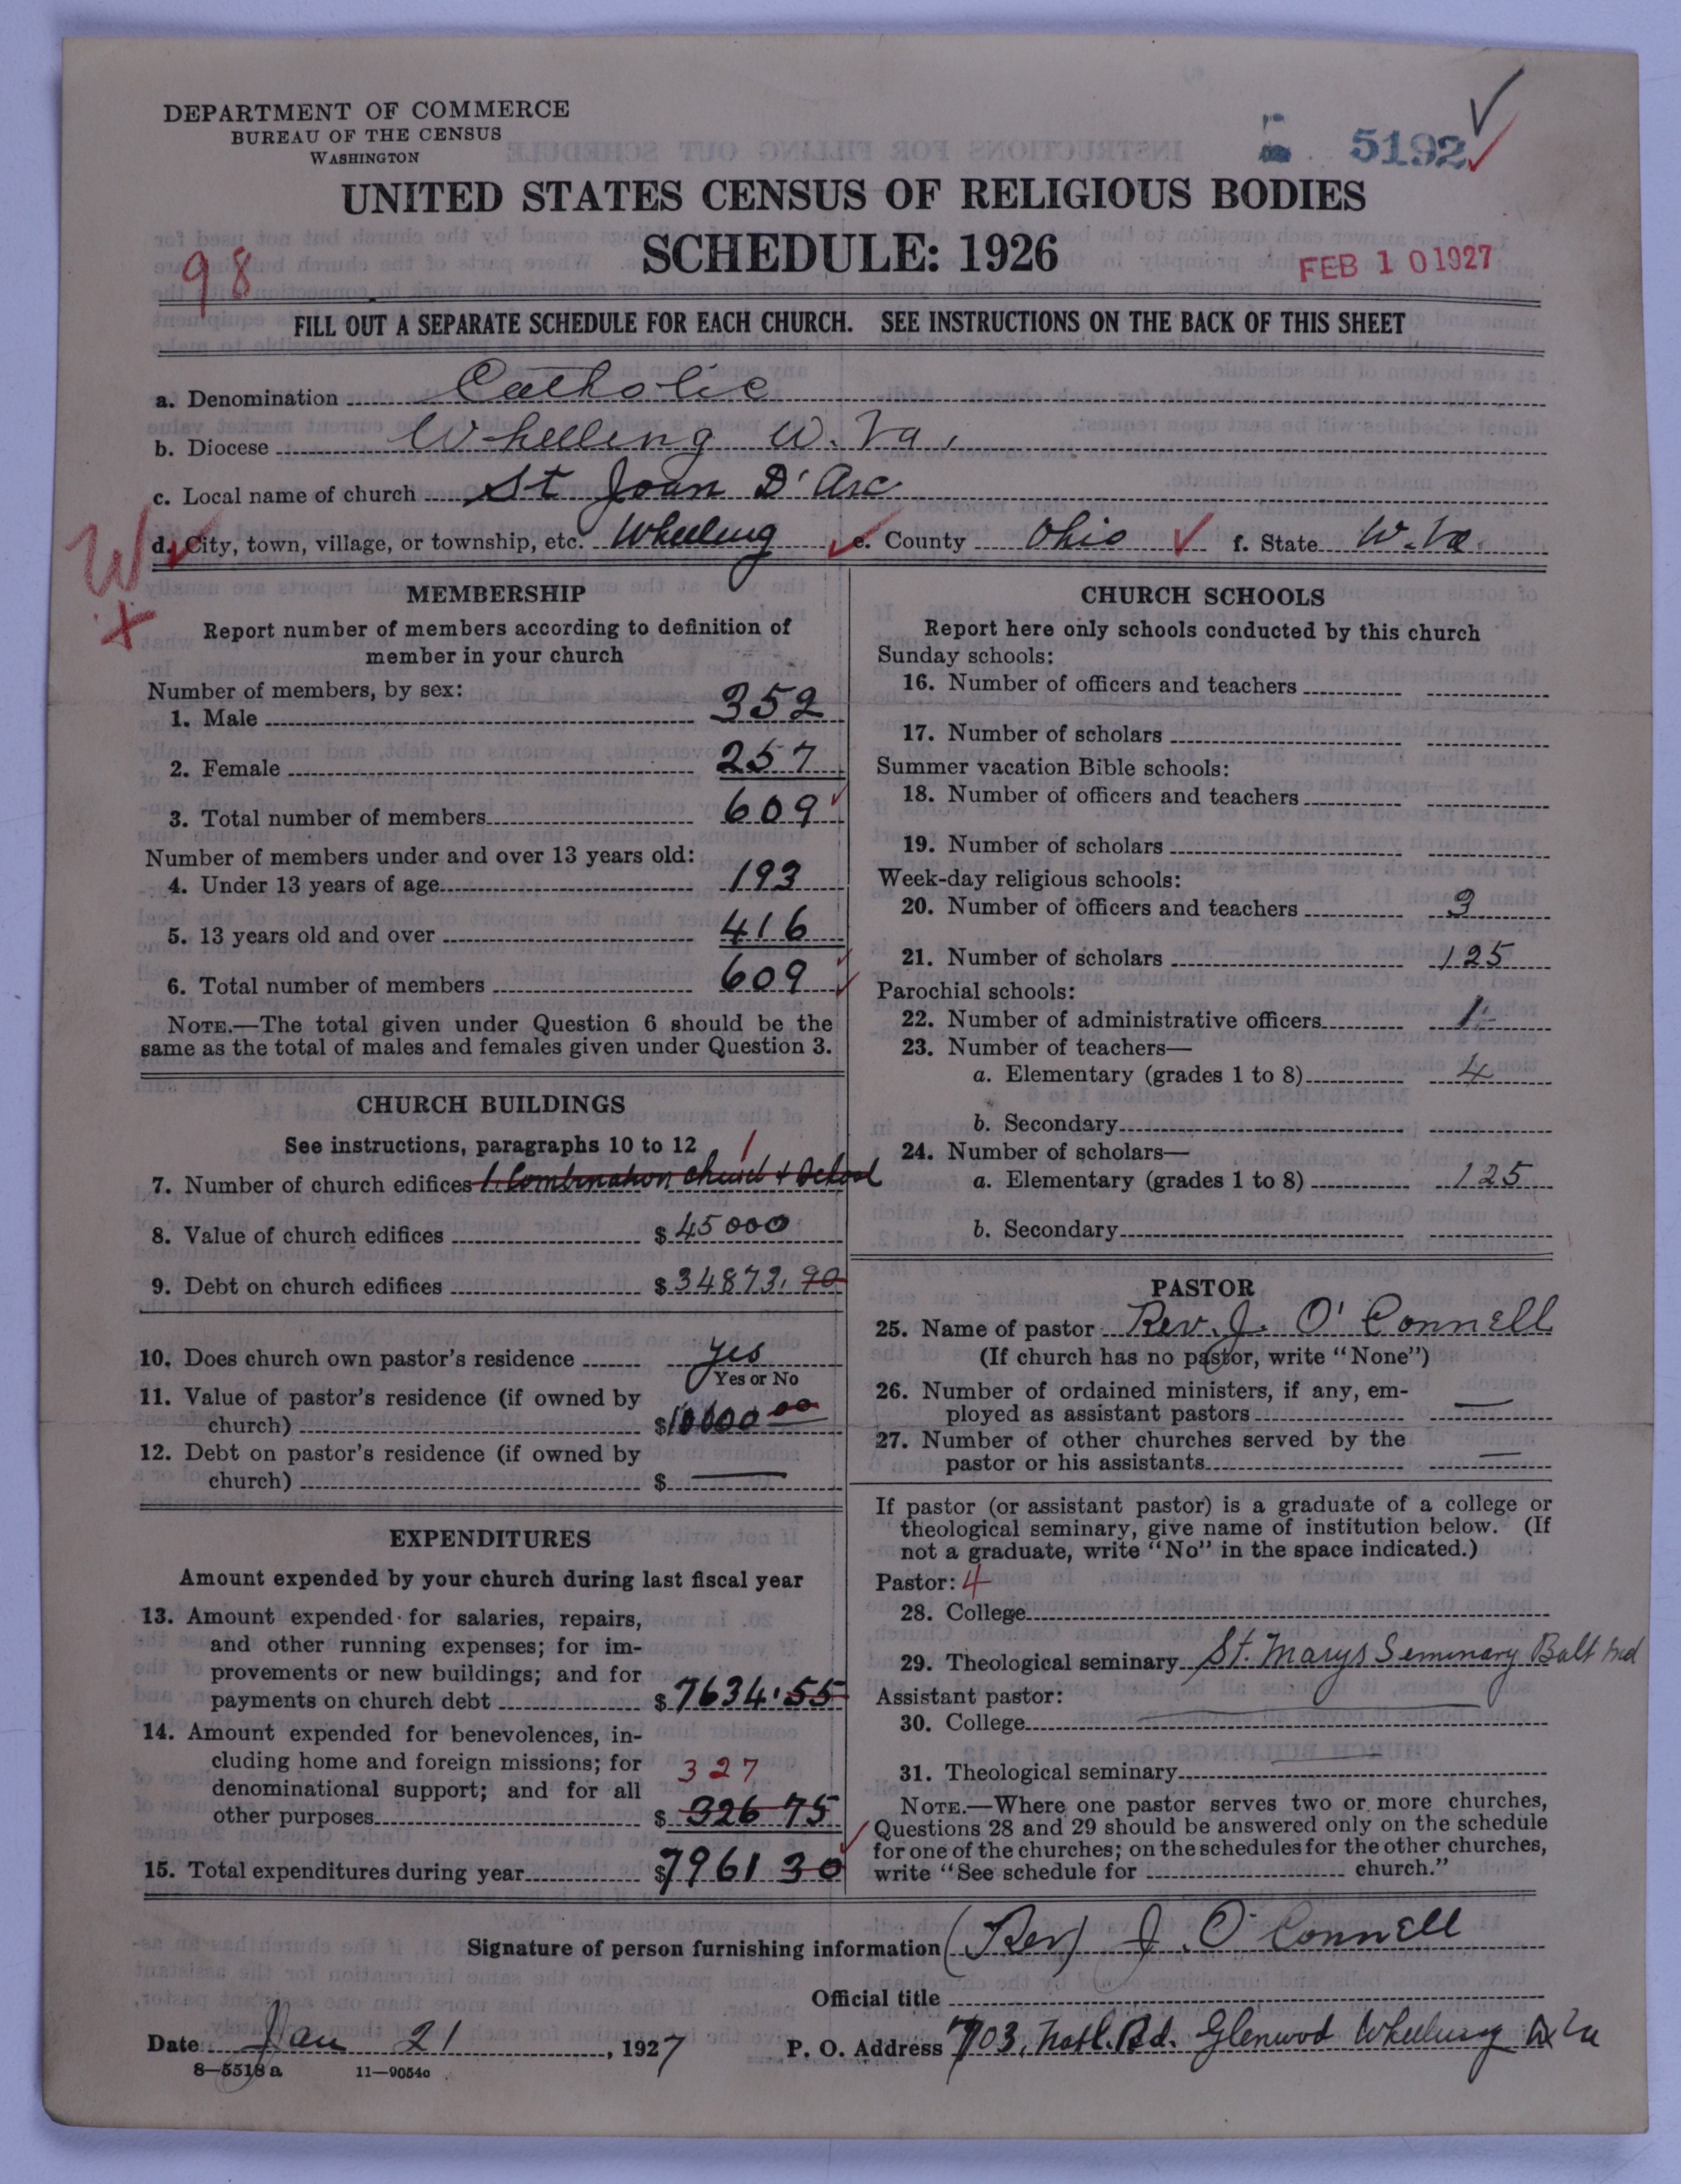 DEPARTMENT OF COMMERCE
BUREAU OF THE CENSUS
WASHINGTON
5192
UNITED STATES CENSUS OF RELIGIOUS BODIES
SCHEDULE: 1926
98
FEB 10 1927
FILL OUT A SEPARATE SCHEDULE FOR EACH CHURCH. SEE INSTRUCTIONS ON THE BACK OF THIS SHEET
a. Denomination Catholic
b. Diocese Wheeling W. Va.
c. Local name of church St Joan D'Arc
W
d. City, town, village, or township, etc. Wheeling e. County Ohio f. State W. Va.
MEMBERSHIP
Report number of members according to definition of
member in your church
Number of members, by sex:
1. Male 352
2. Female 257
3. Total number of members 609
Number of members under and over 13 years old:
4. Under 13 years of age 193
5. 13 years old and over 416
6. Total number of members 609
NOTE.—The total given under Question 6 should be the
same as the total of males and females given under Question 3.
CHURCH BUILDINGS
See instructions, paragraphs 10 to 12
1
7. Number of church edifices 1. Combination Church + School
8. Value of church edifices $ 45000
9. Debt on church edifices $ 34873.90
10. Does church own pastor's residence yes
Yes or No
11. Value of pastor's residence (if owned by
church) $ 10000 00
12. Debt on pastor's residence (if owned by
church) $ —
EXPENDITURES
Amount expended by your church during last fiscal year
13. Amount expended for salaries, repairs,
and other running expenses; for im-
provements or new buildings; and for
payments on church debt $ 7634.55
14. Amount expended for benevolences, in-
cluding home and foreign missions; for
denominational support; and for all
327
other purposes $ 326 75
15. Total expenditures during year $ 7961 30
CHURCH SCHOOLS
Report here only schools conducted by this church
Sunday schools:
16. Number of officers and teachers
17. Number of scholars
Summer vacation Bible schools:
18. Number of officers and teachers
19. Number of scholars
Week-day religious schools:
20. Number of officers and teachers 3
21. Number of scholars 125
Parochial schools:
22. Number of administrative officers 1
23. Number of teachers—
a. Elementary (grades 1 to 8) 4
b. Secondary
24. Number of scholars—
a. Elementary (grades 1 to 8) 125
b. Secondary
PASTOR
25. Name of pastor Rev. J. O'Connell
(If church has no pastor, write "None")
26. Number of ordained ministers, if any, em-
ployed as assistant pastors —
27. Number of other churches served by the
pastor or his assistants —
If pastor (or assistant pastor) is a graduate of a college or
theological seminary, give name of institution below. (If
not a graduate, write "No" in the space indicated.)
Pastor: 4
28. College
29. Theological seminary St. Marys Seminary Balt Md
Assistant pastor:
30. College —
31. Theological seminary —
NOTE.—Where one pastor serves two or more churches,
Questions 28 and 29 should be answered only on the schedule
for one of the churches; on the schedules for the other churches,
write "See schedule for church."
Signature of person furnishing information (Rev) J. O'Connell
Official title
Date Jan 21, 1927 P. O. Address 703, Natl. Rd. Glenwood Wheeling W Va
8—5518 a 11—9054c